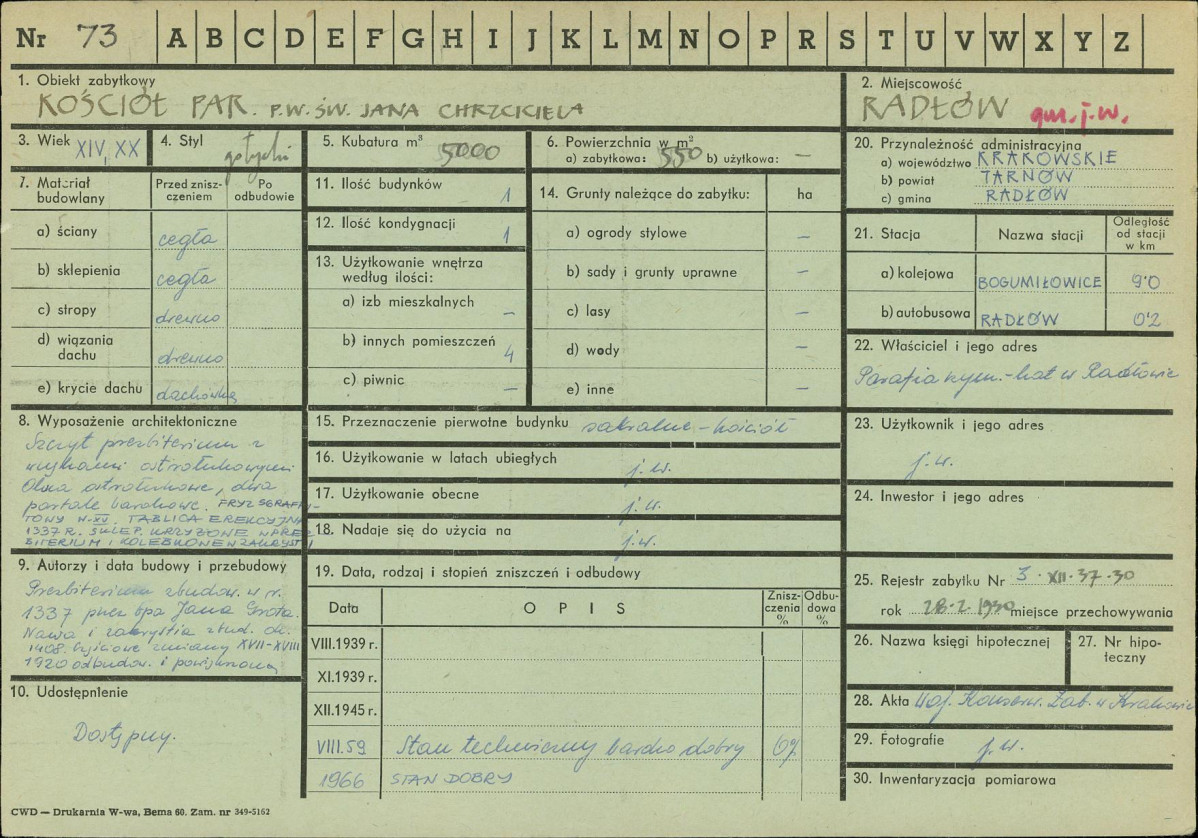 Nr 73 A B C D E F G H I J K L M N O P R S T U V W X Y Z
1. Obiekt zabytkowy
KOŚCIÓŁ PAR. P.W. ŚW. JANA CHRZCICIELA
2. Miejscowość
RADŁÓW gm. j.w.
3. Wiek XIV, XX
4. Styl gotycki
5. Kubatura m³ 5000
6. Powierzchnia w m²
a) zabytkowa: 550 b) użytkowa: —
7. Materiał budowlany
Przed zniszczeniem
Po odbudowie
a) ściany cegła
b) sklepienia cegła
c) stropy drewno
d) wiązania dachu drewno
e) krycie dachu dachówka
8. Wyposażenie architektoniczne
Szczyt prezbiterium z
wnękami ostrołukowymi
Okna ostrołukowe, dwa
portale barokowe. FRYZ SGRAFI-
TOWY W. XV. TABLICA EREKCYJNA
1337 R. SKLEP. KRZYŻOWE W PREZ-
BITERIUM I KOLEBKOWE W ZAKRYSTII
9. Autorzy i data budowy i przebudowy
Prezbiterium zbudow. w r.
1337 przez bpa Jana Grota.
Nawa i zakrystia zbud. ok.
1408. Częściowe zmiany XVII-XVIII
1920 odbudow. i powiększona
10. Udostępnienie
Dostępny.
11. Ilość budynków 1
12. Ilość kondygnacji 1
13. Użytkowanie wnętrza według ilości:
a) izb mieszkalnych —
b) innych pomieszczeń 4
c) piwnic —
14. Grunty należące do zabytku: ha
a) ogrody stylowe —
b) sady i grunty uprawne —
c) lasy —
d) wody —
e) inne —
15. Przeznaczenie pierwotne budynku sakralne - kościół
16. Użytkowanie w latach ubiegłych j. w.
17. Użytkowanie obecne j. w.
18. Nadaje się do użycia na j. w.
19. Data, rodzaj i stopień zniszczeń i odbudowy
Data O P I S Zniszczenia % Odbudowa %
VIII.1939 r.
XI.1939 r.
XII.1945 r.
VIII.59 Stan techniczny bardzo dobry 0%
1966 STAN DOBRY
20. Przynależność administracyjna
a) województwo KRAKOWSKIE
b) powiat TARNÓW
c) gmina RADŁÓW
21. Stacja Nazwa stacji Odległość od stacji w km
a) kolejowa BOGUMIŁOWICE 9·0
b) autobusowa RADŁÓW 0·2
22. Właściciel i jego adres
Parafia rzym.-kat w Radłowie
23. Użytkownik i jego adres
j. w.
24. Inwestor i jego adres
25. Rejestr zabytku Nr 3·XII·37·30
rok 28·2·1930 miejsce przechowywania
26. Nazwa księgi hipotecznej
27. Nr hipoteczny
28. Akta Woj. Konserw. Zab. w Krakowie
29. Fotografie j. w.
30. Inwentaryzacja pomiarowa
CWD — Drukarnia W-wa, Bema 60. Zam. nr 349-5162